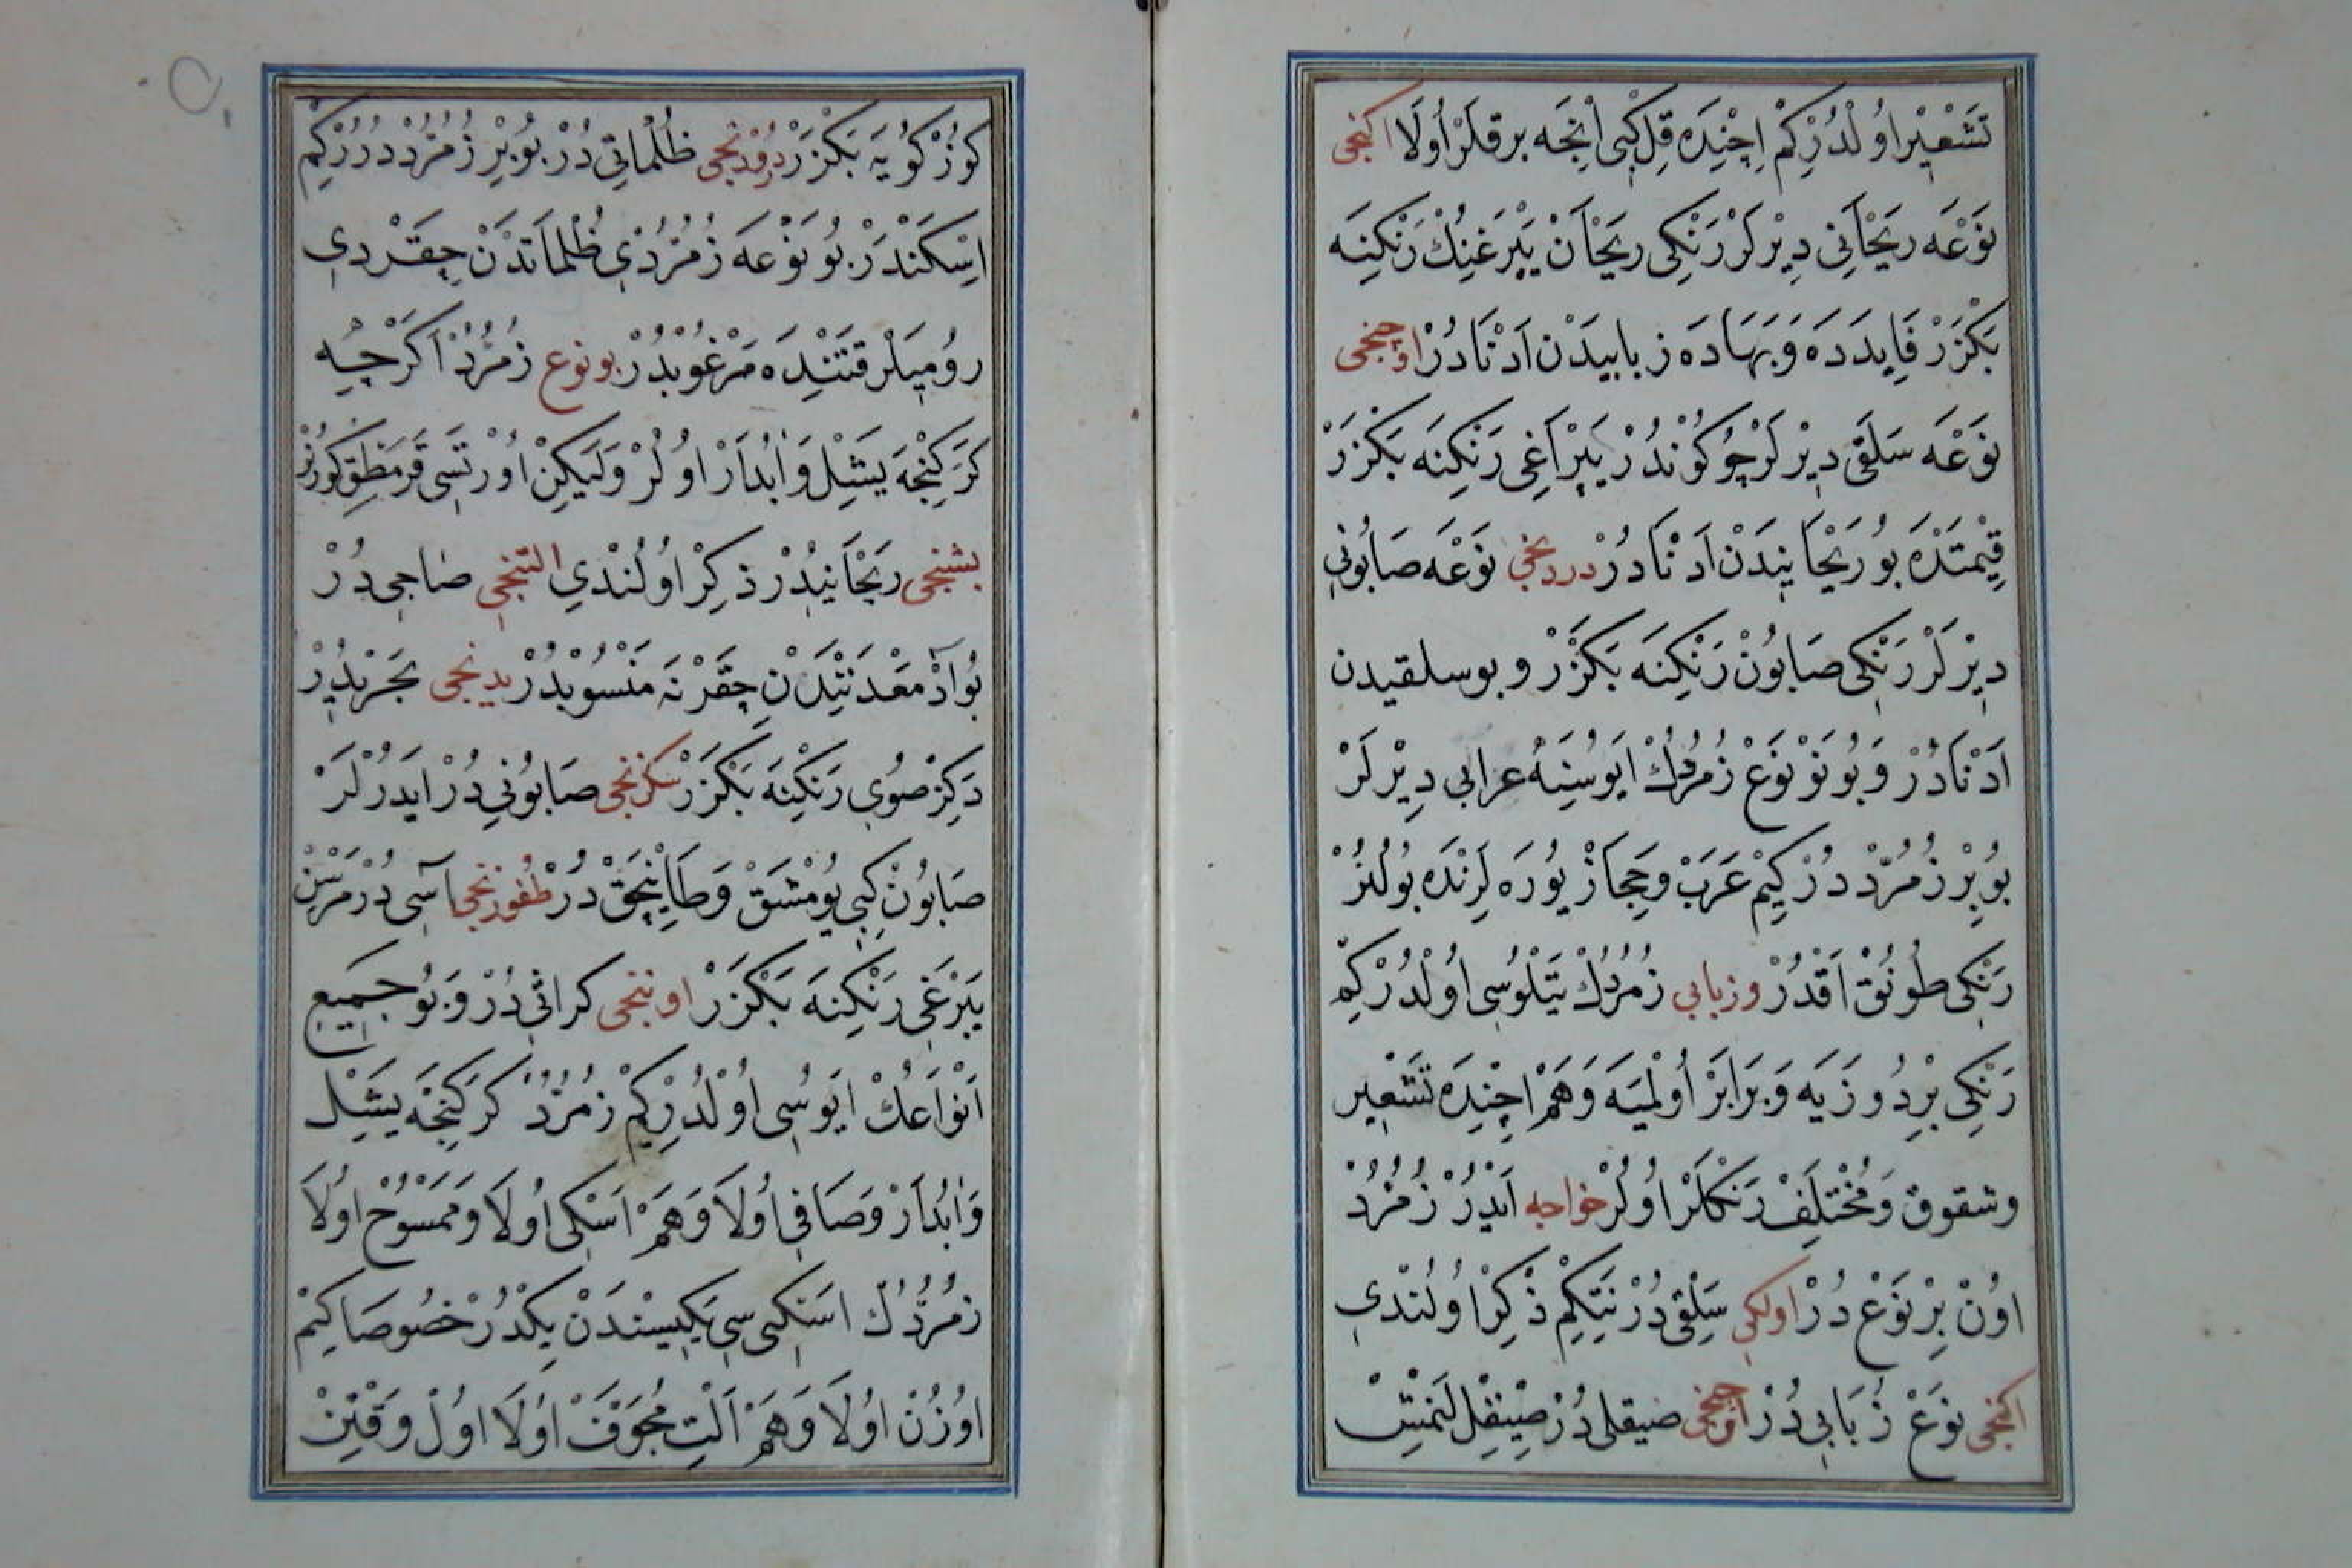 تَشْعِيْر اوُلْدُرْكِمْ اِچِنْدَه قِل كِبِى اِنْجَه برقلَرْ اُولَا اكنجى
نَوْعَه رَيْحَانِى دِيْرلَرْ رَنْكِى رَيْحَانْ يَپْرَغِنِكْ رَنْكِنَه
بَكْزَرْ فَايِدَدَه وَبَهَادَه زبابيدَنْ اَدْنَادُرْ اوچنجى
نَوْعَه سَلَقِى دِيْرلَرْ چُوكُونْدُرْ يَپْرَاغِى رَنْكِنَه بَكْزَرْ
قِيْمَتْدَه بُو رَيْحَانِيدَنْ اَدْنَادُرْ دردنجى نَوْعَه صَابُونِى
دِيْرلَرْ رَنْكِى صَابُونْ رَنْكِنَه بَكْزَرْ و بو سلقيدن
اَدْنَادُرْ وَبُو نَوْ نَوْع زُمُرُدُكْ اَيُوسُنَه عرابى دِيْرلَرْ
بُو بِرْ زُمُرُّدْ دُرْكِيمْ عَرَبْ وَحِجَازْ يُورَه لَرِنْدَه بُولُنُرْ
رَنْكِى طُونُقْ اَقْدُرْ وزبابى زُمُرُدُكْ يَتْلُوسِى اُولْدُرْكِمْ
رَنْكِى بِرْدُوزَيَه وَبَرَابَرْ اُولْمَيَه وَهَمْ اِچِنْدَه تَشْعِير
وشقوق وَمُخْتَلِفْ رَنْكلَرْ اُولُرْ خواجه اَيْدُرْ زُمُرُدْ
اوُنْ بِرْ نَوْعْ دُرْ اولكى سَلِقِى دُرْ نِتَكِمْ ذِكِرْ اوُلُنْدِى
اكنجى نَوْعْ زُبَابِى دُرْ اوچنجى صيقلى دُرْ صِيْقِلْ لَنْمِشْ
كُوزْكُويَه بَكْزَرْ دوردنجى ظُلْمَاتِى دُرْ بُو بِرْ زُمُرُدْ دُرْكِمْ
اِسْكَنْدَرْ بُو نَوْعَه زُمُرُدِى ظُلْمَاتدَنْ چِقَرْدِى
رُومِيلَر قَتَنْدَه مَرْغُوبْدُرْ بو نوع زُمُرُدْ اَكَرْچِه
كَرَكِنْجَه يَشِل وَابْدَارْ اوُلُرْ وَلَيكِنْ اُورْتَسِى قَرَمْطِقْ كُورُنُرْ
بشنجى رَيْحَانِيدُرْ ذِكِرْ اوُلُنْدِى التنجى صَاجِى دُرْ
بُو اَدْ مَعْدَنِنْدَنْ چِقَرْنَه مَنْسُوبْدُرْ يدنجى بَحَرِيْدُرْ
دَكِزْ صُويِى رَنْكِنَه بَكْزَرْ سكزنجى صَابُونِى دُرْ ايَدُرْلَرْ
صَابُونْ كِبِى يُومْشَقْ وَطَاينجَقْ دُرْ طقوزنجى آسِى دُرْ مَرْسِنْ
يَپْرَغِى رَنْكِنَه بَكْزَرْ اوننجى كراثى دُرْ وَبُو جَمِيعِ
اَنْوَاعُكْ اَيُوسِى اُولْدُرْكِيمْ زُمُرُدْ كَرَكِنْجَه يَشِل
وَابْدَارْ وَصَافِى اوُلَا وَهَمْ اَسْكِى اوُلَا وَمَمْسُوحْ اوُلَا
زُمُرُّدُكْ اَسْكِى سِى يَكِيسْنَدَنْ يكْدُرْ خُصُوصَا كِيمْ
اوُزُنْ اوُلَا وَهَمْ اَلْتِ مُجَوَّفْ اوُلَا اوُلْ وَقْتِنْ